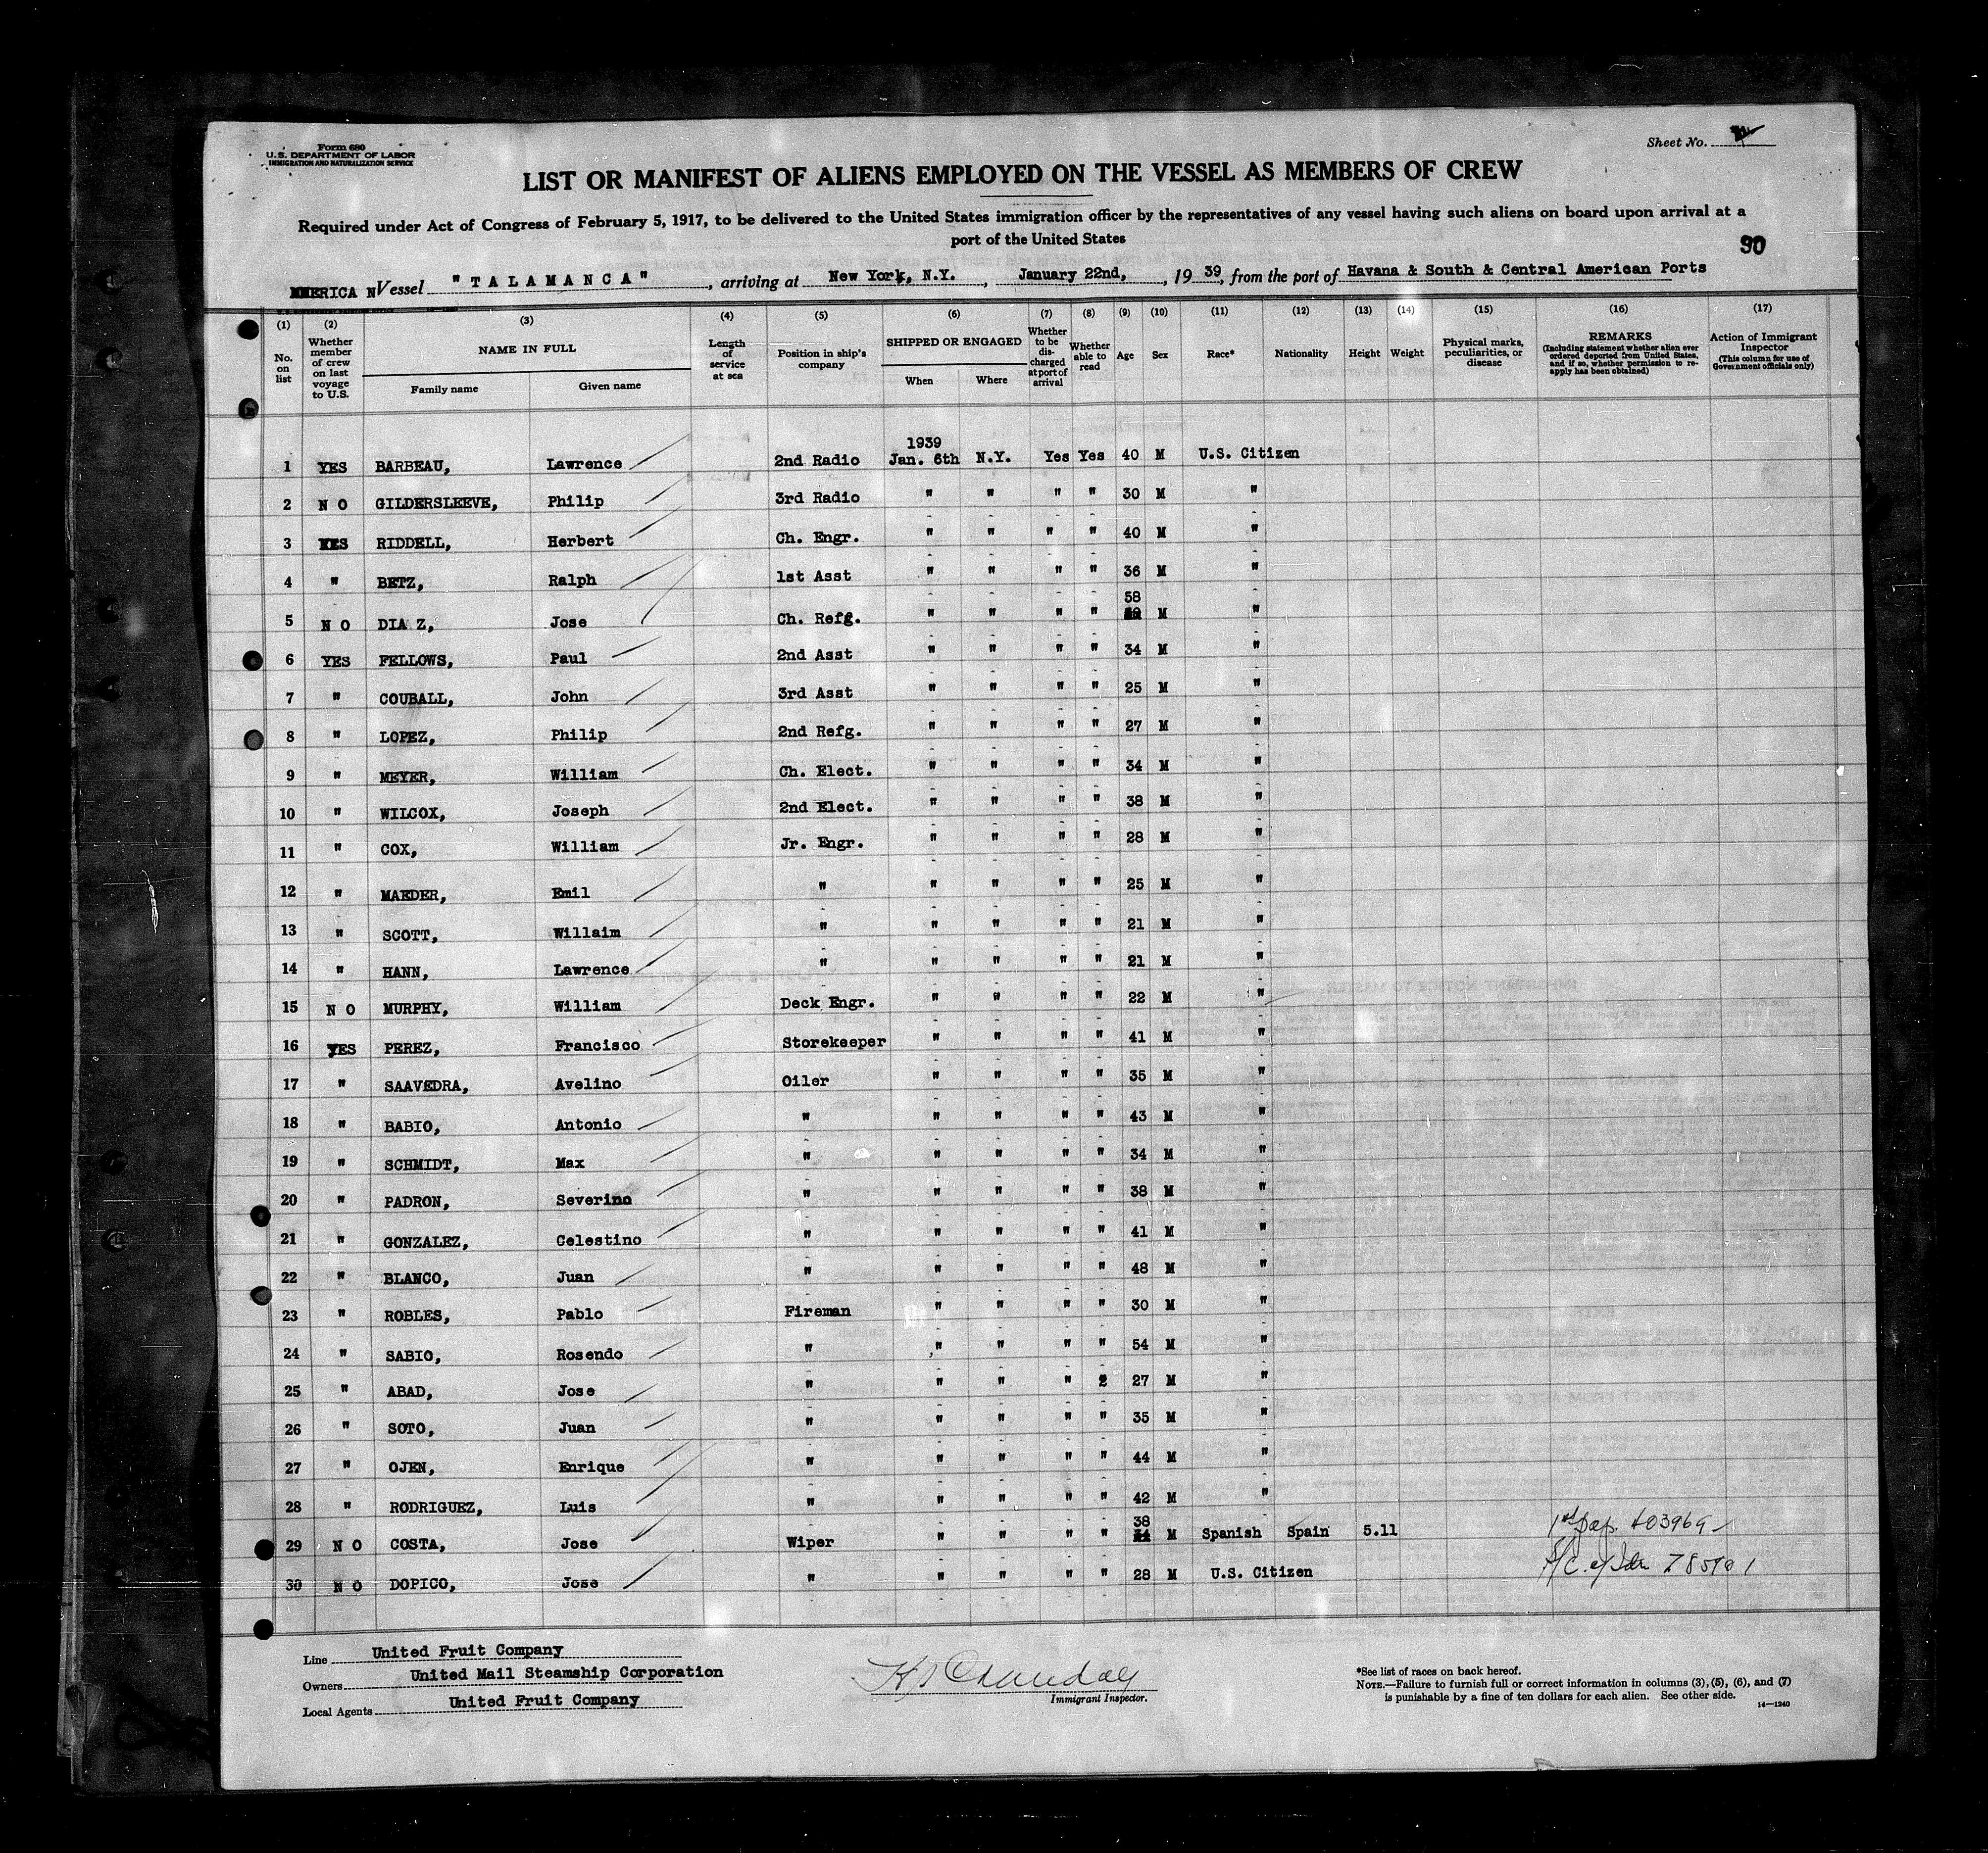 Form 680
U.S. DEPARTMENT OF LABOR
IMMIGRATION AND NATURALIZATION SERVICE
Sheet No.
LIST OR MANIFEST OF ALIENS EMPLOYED ON THE VESSEL AS MEMBERS OF CREW
Required under Act of Congress of February 5, 1917, to be delivered to the United States immigration officer by the representatives of any vessel having such aliens on board upon arrival at a
port of the United States
90
AMERICA N Vessel "TALAMANCA", arriving at New York, N.Y., January 22nd, 1939, from the port of Havana & South & Central American Ports
(1) (2) (3) (4) (5) (6) (7) (8) (9) (10) (11) (12) (13) (14) (15) (16) (17)
No. on list
Whether member of crew on last voyage to U.S.
NAME IN FULL
Family name
Given name
Length of service at sea
Position in ship's company
SHIPPED OR ENGAGED
When
Where
Whether to be discharged at port of arrival
Whether able to read
Age
Sex
Race*
Nationality
Height
Weight
Physical marks, peculiarities, or disease
REMARKS
(Including statement whether alien ever ordered deported from United States, and if so, whether permission to reapply has been obtained)
Action of Immigrant Inspector
(This column for use of Government officials only)
1939
1 YES BARBEAU, Lawrence 2nd Radio Jan. 6th N.Y. Yes Yes 40 M U.S. Citizen
2 N O GILDERSLEEVE, Philip 3rd Radio " " " " 30 M "
3 YES RIDDELL, Herbert Ch. Engr. " " " " 40 M "
4 " BETZ, Ralph 1st Asst " " " " 36 M "
58
5 N O DIA Z, Jose Ch. Refg. " " " " M "
6 YES FELLOWS, Paul 2nd Asst " " " " 34 M "
7 " COUBALL, John 3rd Asst " " " " 25 M "
8 " LOPEZ, Philip 2nd Refg. " " " " 27 M "
9 " MEYER, William Ch. Elect. " " " " 34 M "
10 " WILCOX, Joseph 2nd Elect. " " " " 38 M "
11 " COX, William Jr. Engr. " " " " 28 M "
12 " MAEDER, Emil " " " " " 25 M "
13 " SCOTT, Willaim " " " " " 21 M "
14 " HANN, Lawrence " " " " " 21 M "
15 N O MURPHY, William Deck Engr. " " " " 22 M "
16 YES PEREZ, Francisco Storekeeper " " " " 41 M "
17 " SAAVEDRA, Avelino Oiler " " " " 35 M "
18 " BABIO, Antonio " " " " " 43 M "
19 " SCHMIDT, Max " " " " " 34 M "
20 " PADRON, Severino " " " " " 38 M "
21 " GONZALEZ, Celestino " " " " " 41 M "
22 " BLANCO, Juan " " " " " 48 M "
23 " ROBLES, Pablo Fireman " " " " 30 M "
24 " SABIO, Rosendo " " " " " 54 M "
25 " ABAD, Jose " " " " 2 27 M "
26 " SOTO, Juan " " " " " 35 M "
27 " OJEN, Enrique " " " " " 44 M "
28 " RODRIGUEZ, Luis " " " " " 42 M "
38
29 N O COSTA, Jose Wiper " " " " M Spanish Spain 5.11 1st pap. 403969
30 N O DOPICO, Jose " " " " " 28 M U.S. Citizen
Line United Fruit Company
Owners United Mail Steamship Corporation
Local Agents United Fruit Company
Immigrant Inspector.
*See list of races on back hereof.
NOTE.—Failure to furnish full or correct information in columns (3), (5), (6), and (7)
is punishable by a fine of ten dollars for each alien. See other side.
14—1240